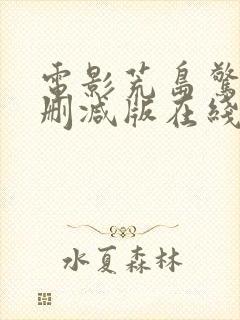 電影荒島驚
刪減版在綫
水夏森林